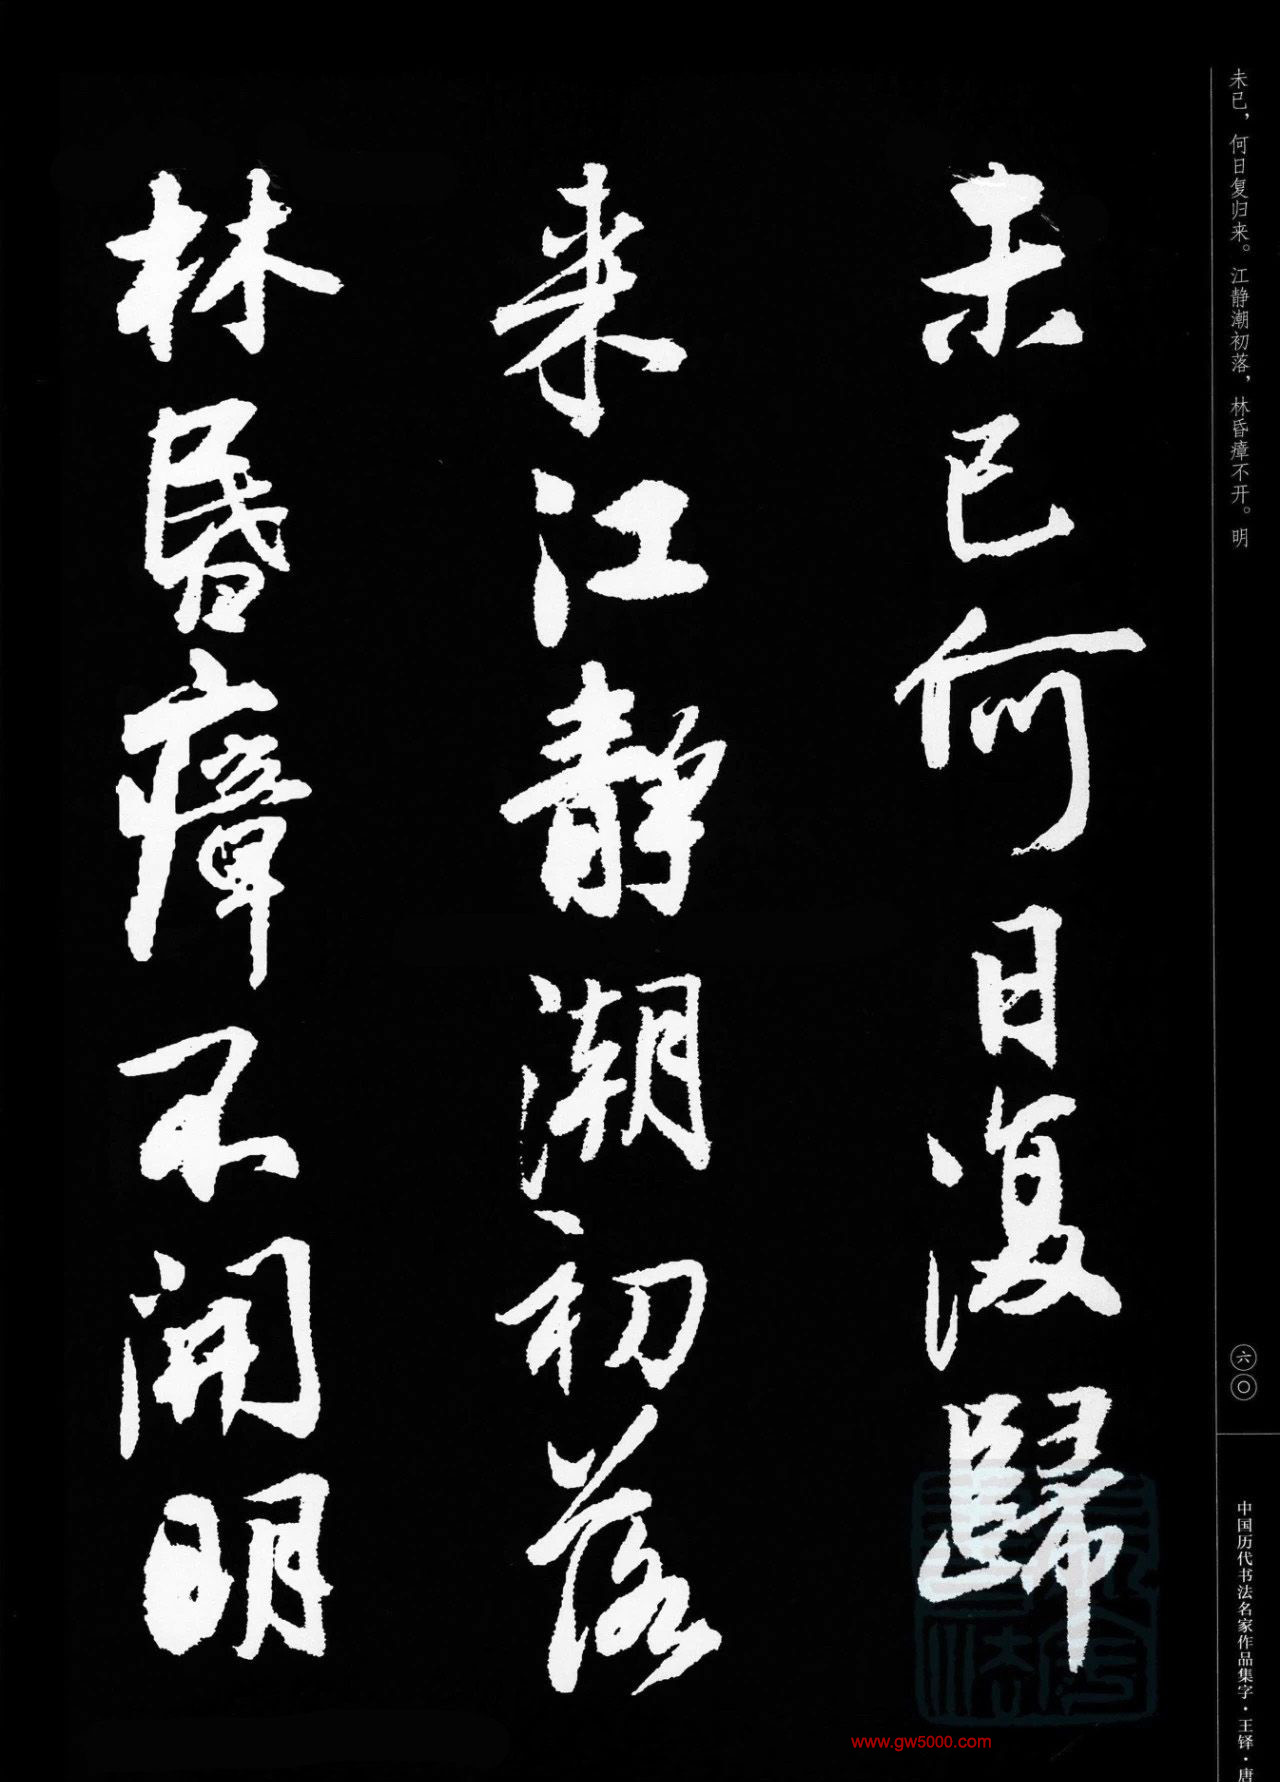 未已，何日复归来。江静潮初落，林昏瘴不开。明
未已何日復歸
来江静潮初落
林昏瘴不開明
六〇
中国历代书法名家作品集字·王铎·唐
www.gw5000.com